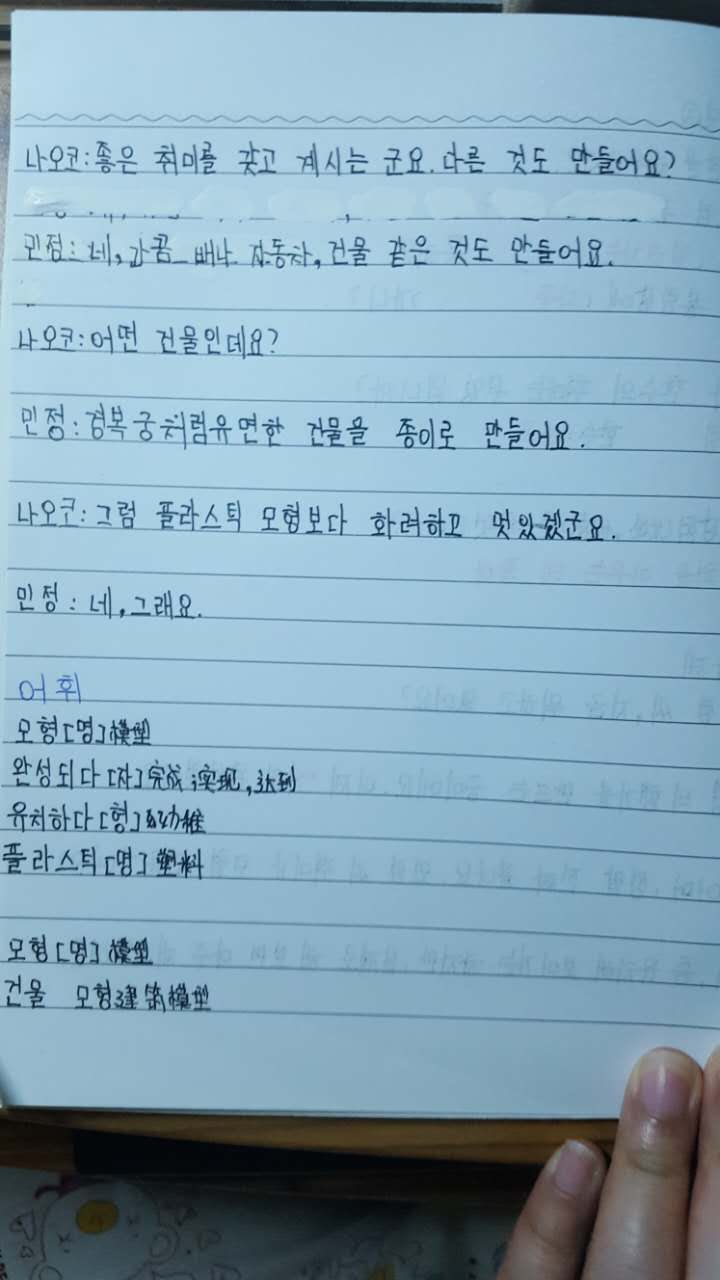 나오코:좋은 취미를 갖고 계시는 군요.다른 것도 만들어요?
민정:네,가끔 배나 자동차,건물 같은 것도 만들어요.
나오코:어떤 건물인데요?
민정:경복궁처럼유면한 건물을 종이로 만들어요.
나오코:그럼 플라스틱 모형보다 화려하고 멋있겠군요.
민정:네,그래요.
어휘
모형[명]模型
완성되다[자]完成;实现,达到
유치하다[형]幼稚
플라스틱[명]塑料
모형[명]模型
건물 모형建筑模型